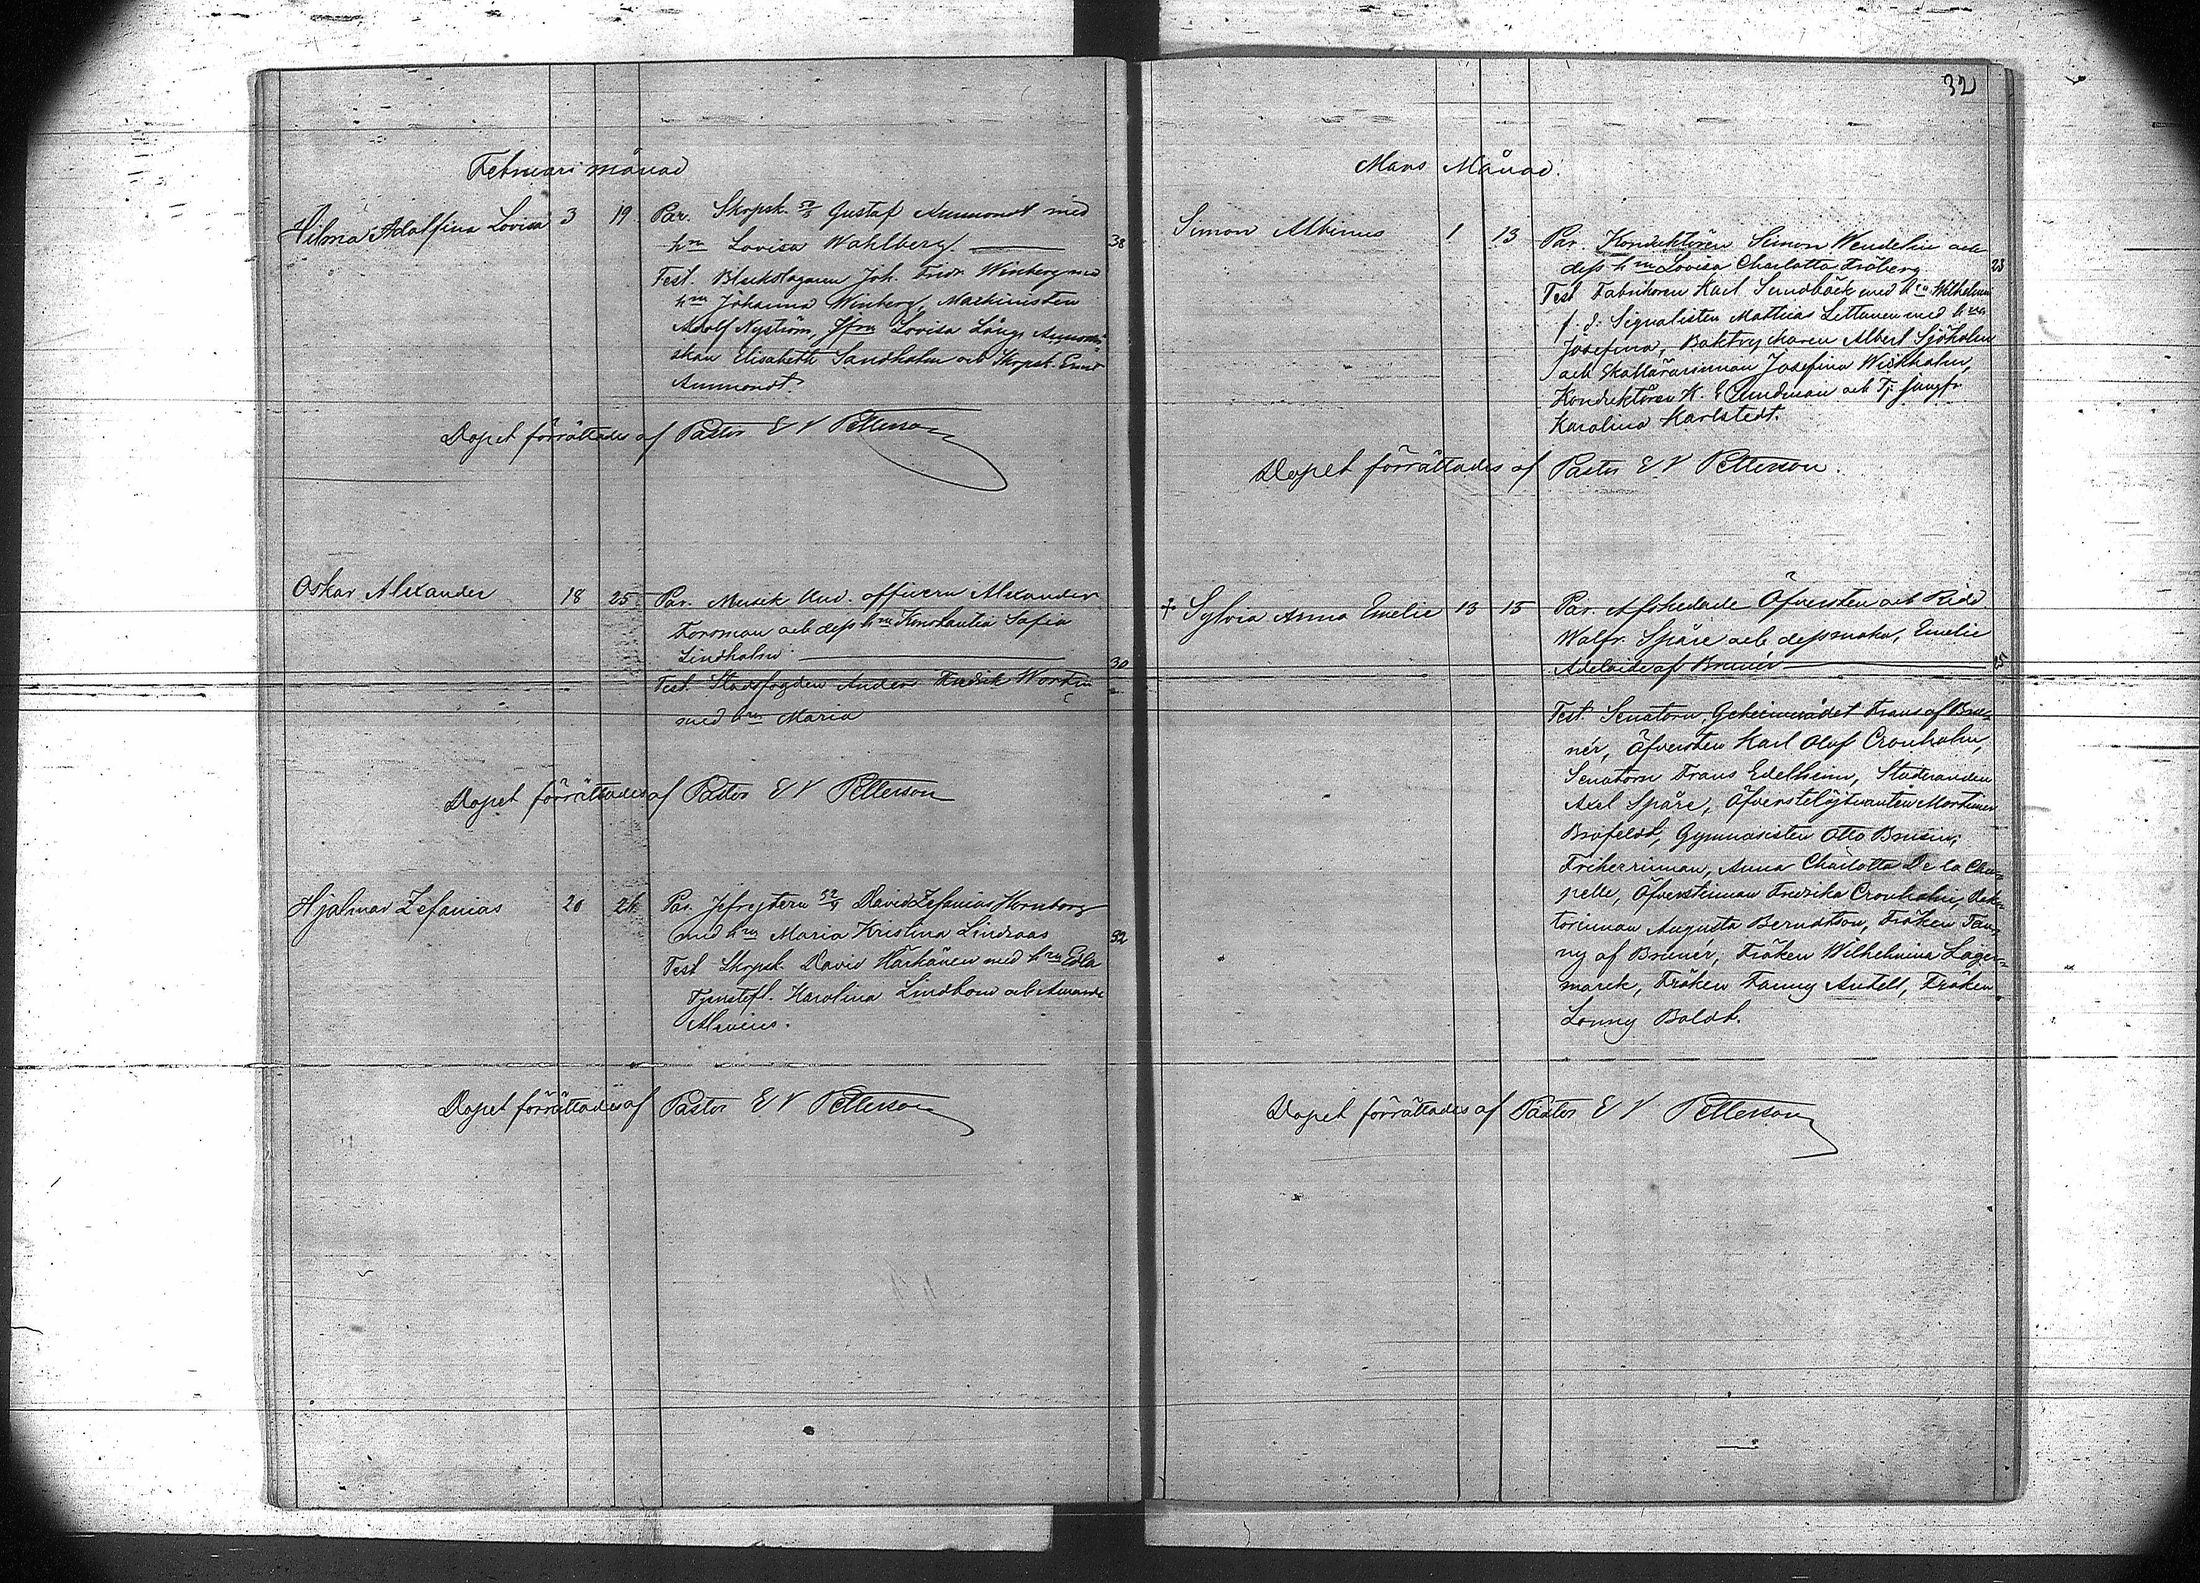 Februari månad
Vilma Adolfina Lovisa 3 19 Par. Skrpsk. Gustaf Ammondt med
hru Lovisa Wahlberg 38
Test. Bleckslagaren Joh. Fridr. Winberg med
hru Johanna Winberg, Maskinisten
Adolf Nyström, Jfru Lovisa Lång,
Elisabeth Sandholm och Skrpsk.
Ammondt.
Dopet förrättades af Pastor E V Petterson
Oskar Alexander 18 25 Par. Musik Und. officern Alexander
Forsman och dess hru Konstantia Sofia
Lindholm 30
Test. Stadsfogden Anders Fredrik
med hru Maria
Dopet förrättades af Pastor E V Petterson
Hjalmar Zefanias 20 26 Par. Jefrejtern David Zefanias Hornborg
med hru Maria Kristina Lindroos 32
Test Skrpsk. David Harhänen med hru Edla
Tjenstefl. Karolina och Amanda
Dopet förrättades af Pastor E V Petterson
32
Mars Månad.
Simon Albinus 1 13 Par. Konduktören Simon Wendelin och
dess hru Lovisa Charlotta Fröberg 28
Test Fabrikören Karl Sundbäck med hru Wilhelmina
f. d. Signalisten Mathias Lettunen med hru
Josefina, Boktryckaren Albert Sjöholm
och Josefina Wickholm,
Konduktören K. E. Lindman och Tj. jungfr.
Karolina Karlstedt.
Dopet förrättades af Pastor E V Petterson.
† Sylvia Anna Emelie 13 15 Par. Afskedade Öfversten och Ridd.
Walfr. Spåre och dess maka, Emelie
Adelaide af Brunér 25
Test. Senatorn, Geheimerådet Frans af Bru-
nér, Öfversten Karl Olof Cronholm,
Senatorn Frans Edelheim, Studeranden
Axel Spåre, Öfverstelöjtnanten Mortimer
Brofeldt, Gymnasisten Otto Brusin;
Friherrinnan, Anna Charlotta De la Cha-
pelle, Öfverstinnan Fredrika Cronholm, Rek-
torinnan Augusta Berndtson, Fröken Fan-
ny af Brunér, Fröken Wilhelmina Lager-
marck, Fröken Fanny Antell, Fröken
Lonny Boldt.
Dopet förrättades af Pastor E V Petterson